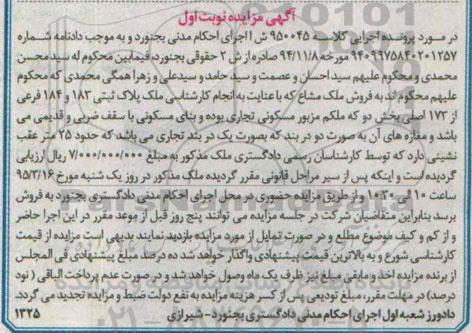 آگهی مزایده نوبت اول
در مورد پرونده اجرایی کلاسه ۹۵۰۰۴۵ ش ۱ اجرای احکام مدنی بجنورد و به موجب دادنامه شماره
۹۴۰۹۹۷۵۸۴۰۲۰۱۲۵۷ مورخه ۹۴/۱۱/۸ صادره از ش ۲ حقوقی بجنورد فیمابین محکوم له سید محسن
محمدی و محکوم علیهم سید احسان و عصمت و سید حامد و سید علی و زهرا همگی محمدی که محکوم
علیهم محکومند به فروش ملک مشاع که با عنایت به انجام کارشناسی ملک پلاک ثبتی ۱۸۳ و ۱۸۴ فرعی
از ۱۷۳ اصلی بخش دو که ملکم مزبور مسکونی تجاری بوده و بنای مسکونی با سقف ضربی و قدیمی می
باشد و مغازه های آن به صورت دو در بند که بصورت یک در بند تجاری می باشد که حدود ۲۵ متر عقب
نشینی دارد که توسط کارشناسان رسمی دادگستری ملک مذکور به مبلغ ۷/۰۰۰/۰۰۰/۰۰۰ ریال ارزیابی
گردیده است و اینکه پس از سیر مراحل قانونی مقرر گردیده ملک مذکور در روز یک شنبه مورخ ۹۵/۳/۱۶
ساعت ۱۰ الی ۱۰:۳۰ و از طریق مزایده حضوری در محل اجرای احکام مدنی دادگستری بجنورد به فروش
برسد بنابراین متقاضیان شرکت در جلسه مزایده می توانند پنج روز قبل از موعد مقرر در این اجرا حاضر
و از کم و کیف موضوع مطلع و در صورت تمایل از مورد مزایده بازدید نمایند بدیهی است مزایده از قیمت
کارشناسی شروع و به بالاترین قیمت پیشنهادی واگذار خواهد شد ده درصد مبلغ پیشنهادی فی المجلس
از برنده مزایده اخذ و مابقی مبلغ نیز ظرف یک ماه وصول خواهد شد و در صورت عدم پرداخت الباقی ( نود
درصد) در مهلت مقرر، مبلغ تودیعی پس از کسر هزینه مزایده به نفع دولت ضبط و مزایده تجدید می گردد.
دادورز شعبه اول اجرای احکام مدنی دادگستری بجنورد- شیرازی ۱۳۲۵